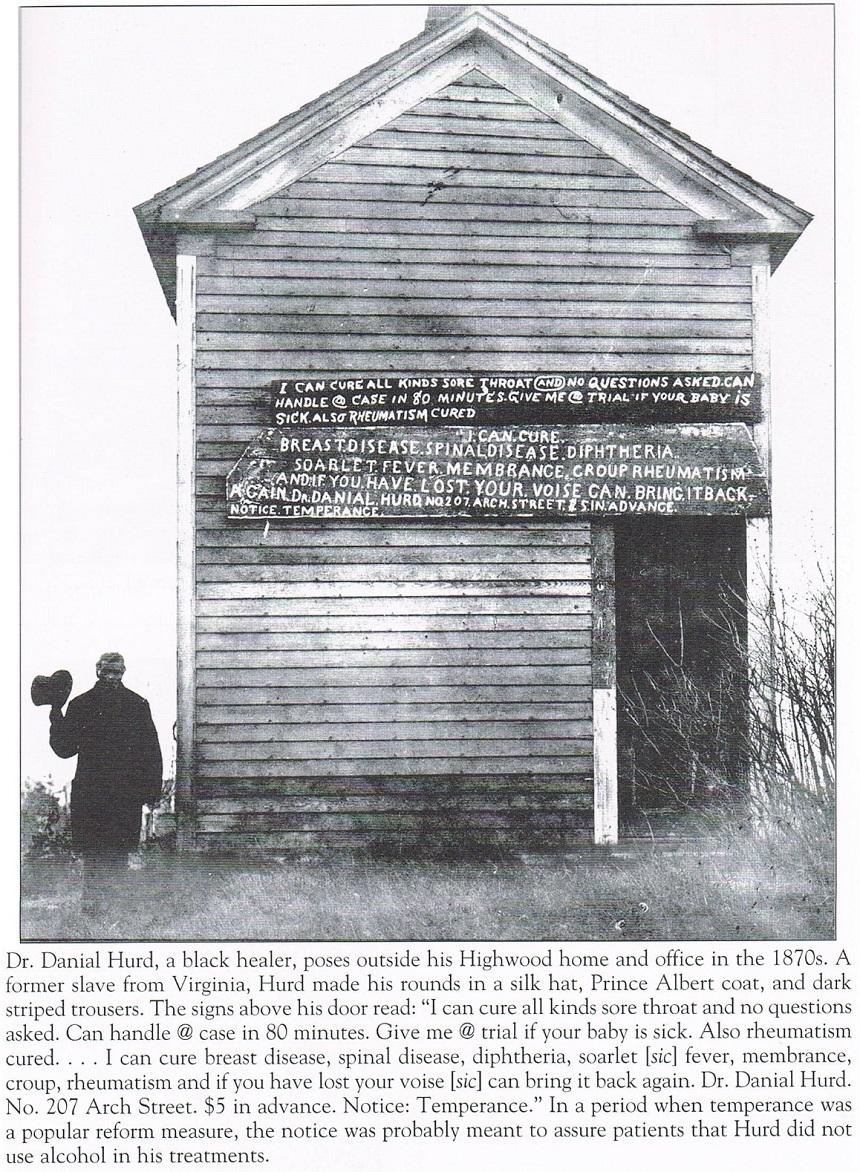 I CAN CURE ALL KINDS SORE THROAT AND NO QUESTIONS ASKED. CAN
HANDLE @ CASE IN 80 MINUTES. GIVE ME @ TRIAL IF YOUR BABY IS
SICK. ALSO RHEUMATISM CURED
I. CAN. CURE.
BREAST. DISEASE. SPINAL DISEASE. DIPHTHERIA.
SOARLET. FEVER. MEMBRANCE. CROUP RHEUMATISM
AND. IF YOU. HAVE LOST YOUR. VOISE CAN. BRING. IT BACK.
AGAIN. DR. DANIAL. HURD. NO 207. ARCH. STREET. $5. IN. ADVANCE.
NOTICE. TEMPERANCE.
Dr. Danial Hurd, a black healer, poses outside his Highwood home and office in the 1870s. A
former slave from Virginia, Hurd made his rounds in a silk hat, Prince Albert coat, and dark
striped trousers. The signs above his door read: “I can cure all kinds sore throat and no questions
asked. Can handle @ case in 80 minutes. Give me @ trial if your baby is sick. Also rheumatism
cured. . . . I can cure breast disease, spinal disease, diphtheria, soarlet [sic] fever, membrance,
croup, rheumatism and if you have lost your voise [sic] can bring it back again. Dr. Danial Hurd.
No. 207 Arch Street. $5 in advance. Notice: Temperance.” In a period when temperance was
a popular reform measure, the notice was probably meant to assure patients that Hurd did not
use alcohol in his treatments.